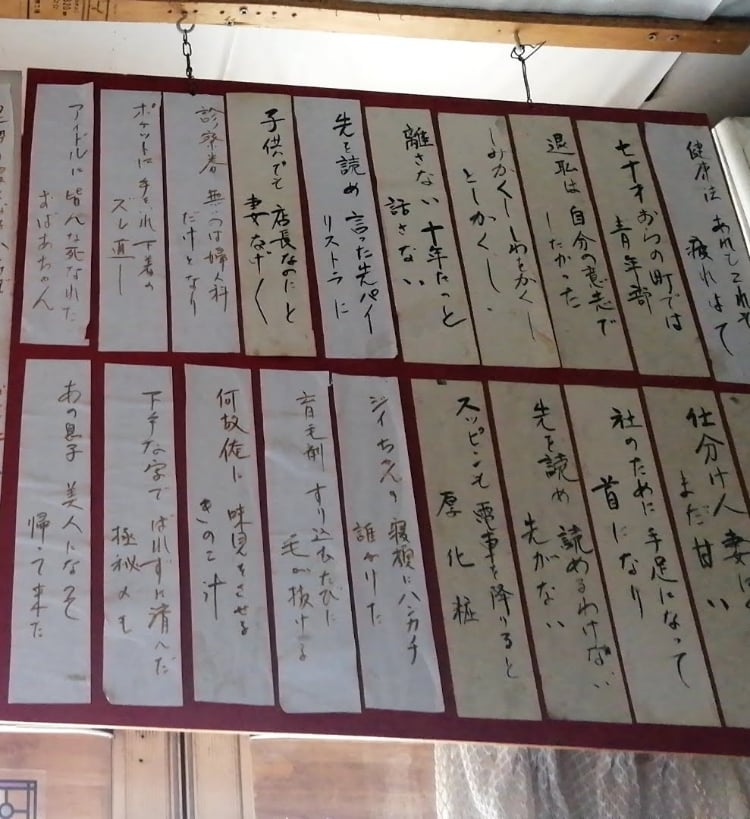 健康法 あれしてこれや
疲れはて
七十才おらの町では
青年部
退職は 自分の意志で
したかった
しみかくし しわをかくし
としかくし
離さない 十年たつと
話さない
先を読め 言った先パイ
リストラに
子供でも 店長なのにと
妻なげく
診察券 無いのは婦人科
だけとなり
ポケットに 手を入れ下着の
ズレ直し
アイドルに 皆んな死なれた
おばあちゃん
仕分け人 妻に
まだ甘い
社のために 手足になって
首になり
先を読め 読めるわけない
先がない
スッピンも 電車を降りると
厚化粧
ジイちゃんの 寝顔にハンカチ
誰かけた
育毛剤 すり込むたびに
毛が抜ける
何故俺に 味見をさせる
きのこ汁
下手な字で ばれずに済んだ
極秘メモ
あの息子 美人になって
帰って来た